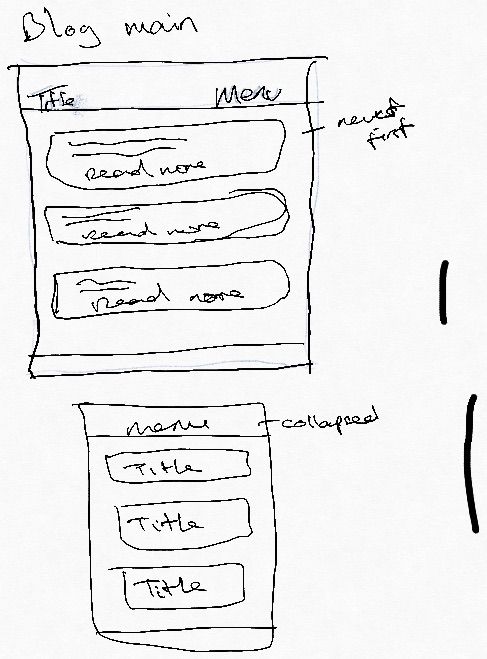 Blog main
Title Menu
newest
first
read more
read more
read more
menu
collapsed
Title
Title
Title